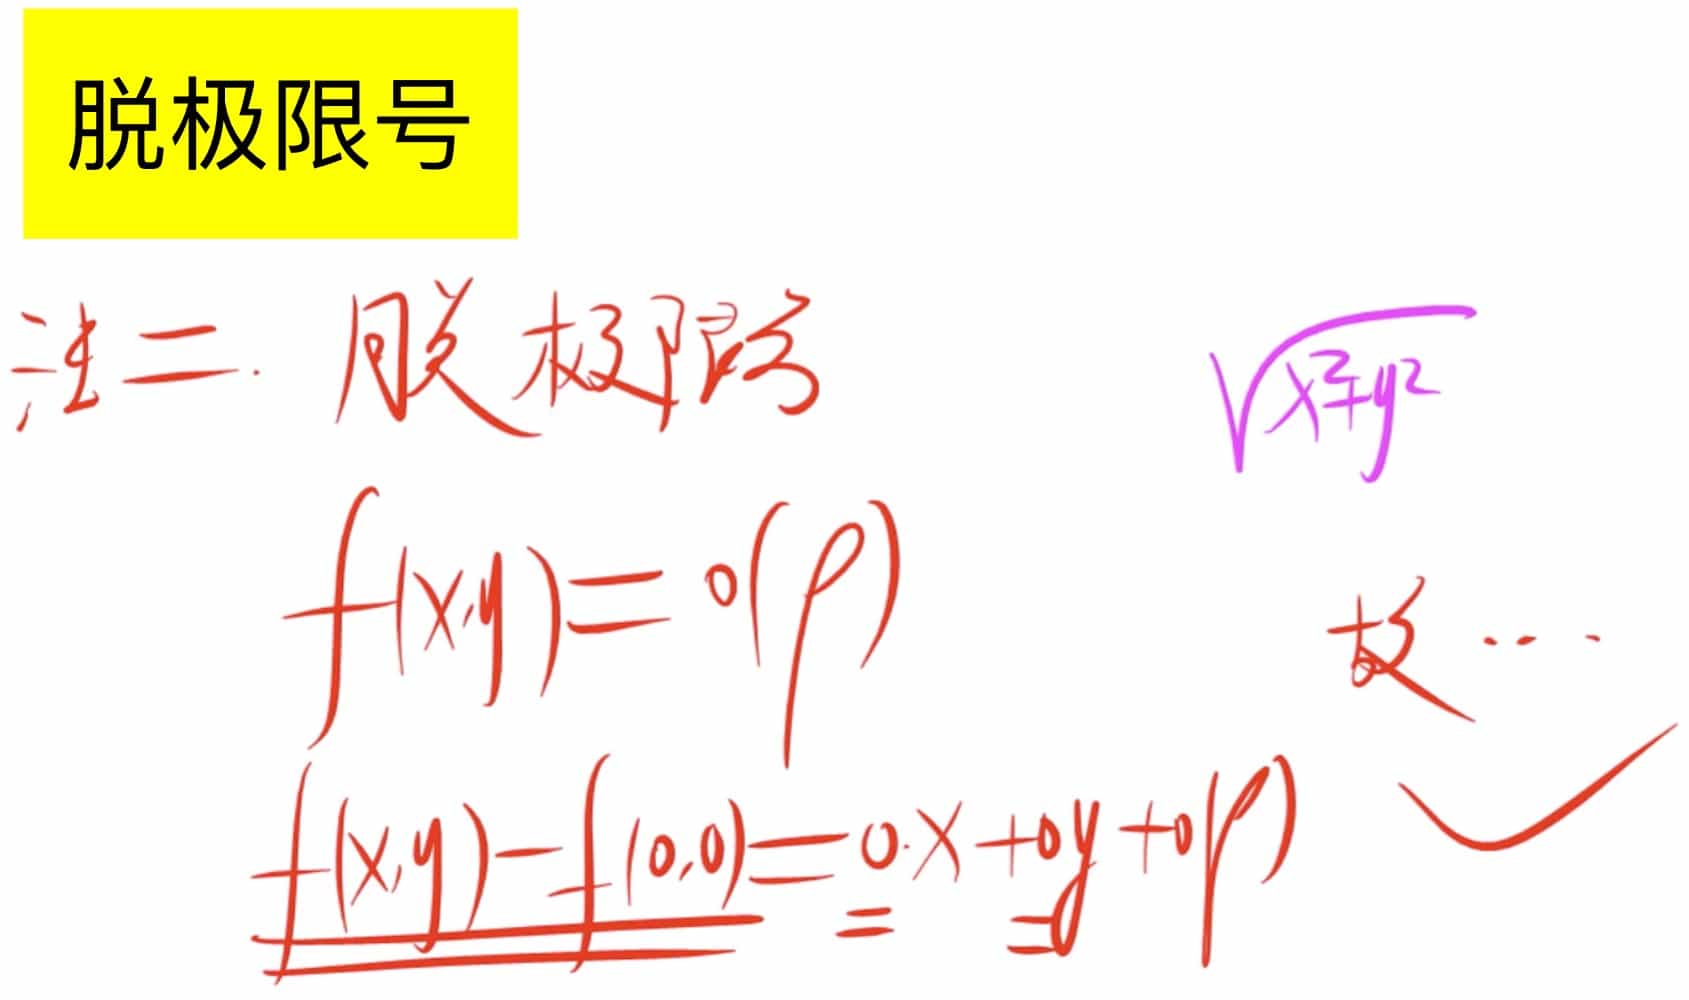 脱极限号
法二. 脱极限号
√x²+y²
f(x,y)=o(ρ)
故...
f(x,y)-f(0,0)=0·x+0y+o(ρ)